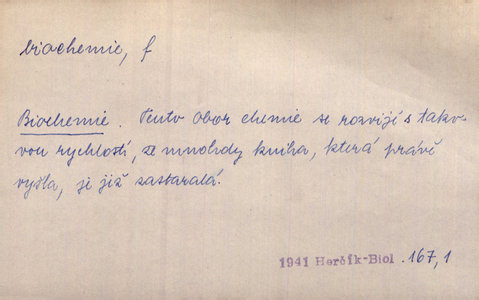 biochemie, f
Biochemie. Tento obor chemie se rozvíjí s tako-
vou rychlostí, že mnohdy kniha, která právě
vyšla, je již zastaralá.
1941 Herčík-Biol .167,1